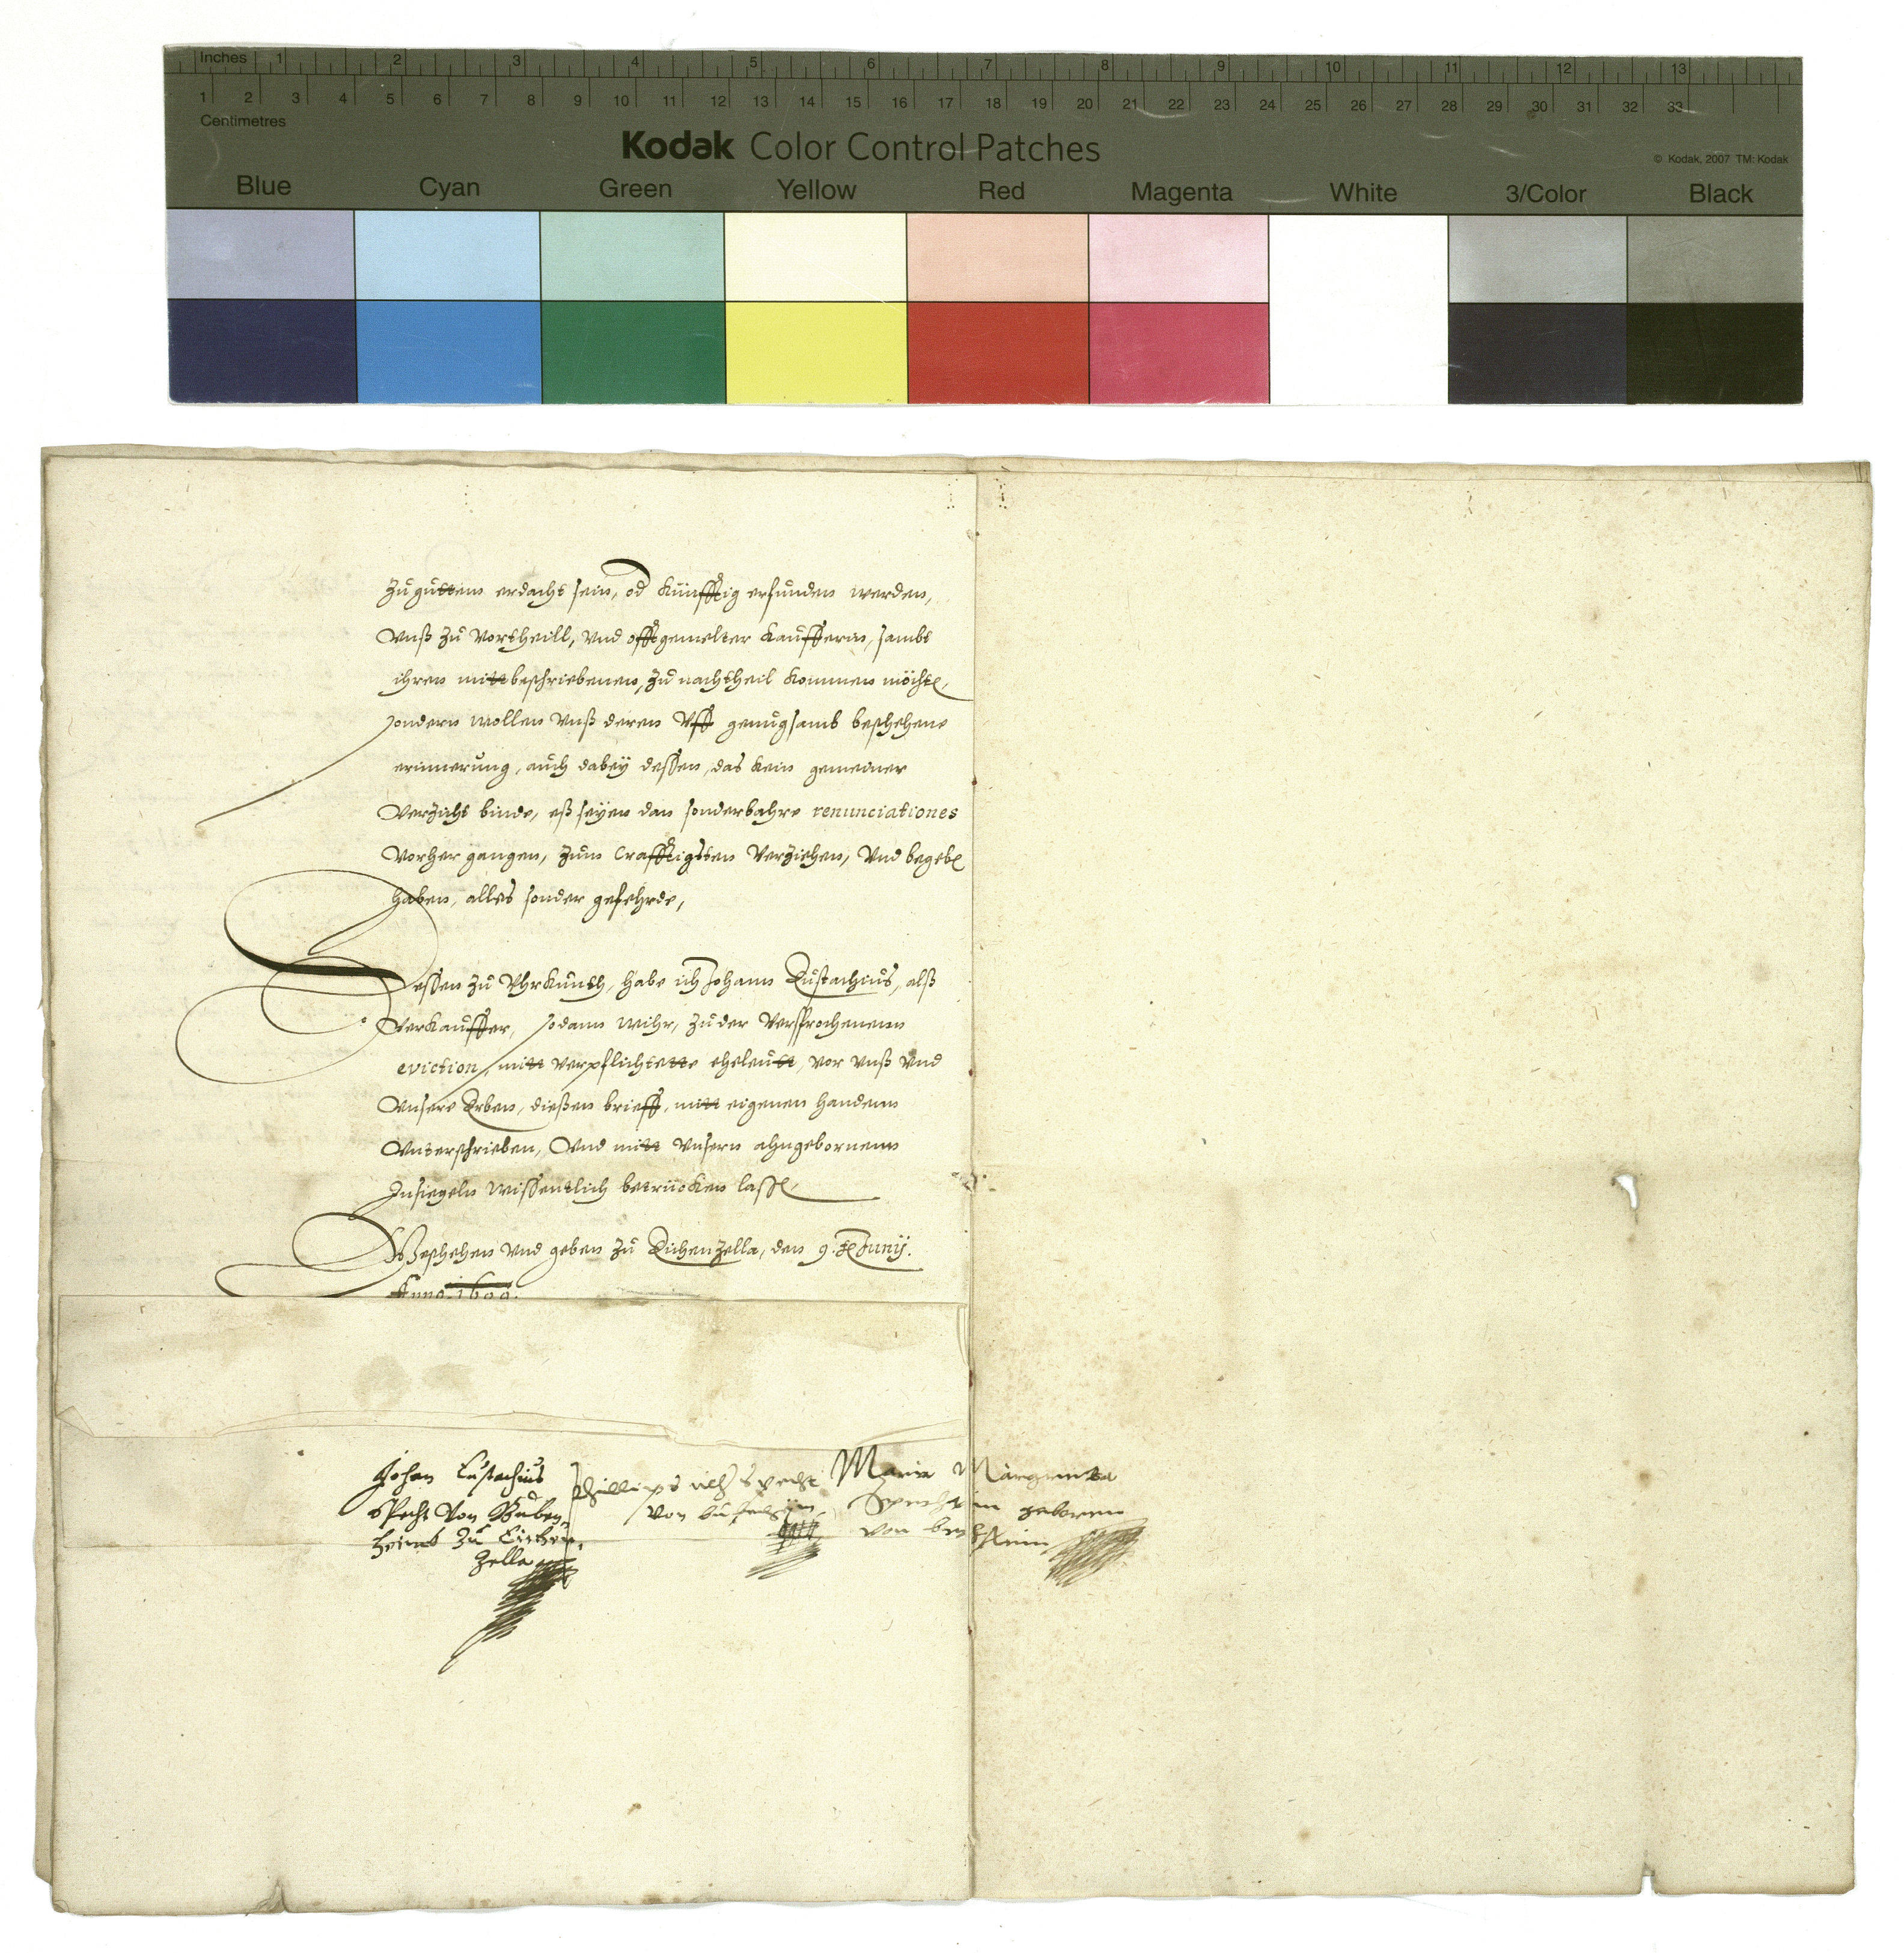 Inches 1 2 3 4 5 6 7 8 9 10 11 12 13
1 2 3 4 5 6 7 8 9 10 11 12 13 14 15 16 17 18 19 20 21 22 23 24 25 26 27 28 29 30 31 32 33
Centimetres
Kodak Color Control Patches
© Kodak, 2007 TM: Kodak
Blue Cyan Green Yellow Red Magenta White 3/Color Black
Zu guttem erdacht sein, od künfftig erfunden werden,
Vnß zu Vortheill, Vnd offtgemelter Kaufferin, sambt
ihren mittbeschriebenen, zu nachtheil kommen möchte,
sondern wollen Vnß deren Vff genugsamb beschehene
erinnerung, auch dabey dessen, das kein gemeiner
Verzicht binde, eß seyen dan sonderbahre renunciationes
Vorher gangen, zum Crafftigsten Verziehen, Vnd begeben
haben, alles sonder gefehrde,
Dessen zu Vhrkunth, habe ich Johann Eustachius, alß
Verkauffer, sodann wihr, zu der Versprochenenn
eviction, mitt Verpflichtette eheleutt, vor Vnß Vnd
Vnsere Erben, dießen brieff, mitt eigenen handenn
Vnterschrieben, Vnd mitt Vnsern ahngebornenn
Insiegeln wissentlich betrücken lassen,
Geschehen Vnd geben zu Eichenzella, den 9. Juny.
Anno. 1600.
Johan Eustachius
Specht Von Buben,
heimb zu Eichen,
Zella
Phillips specht
von bubenheim
Maria Margreta
Spechtin geboren
von